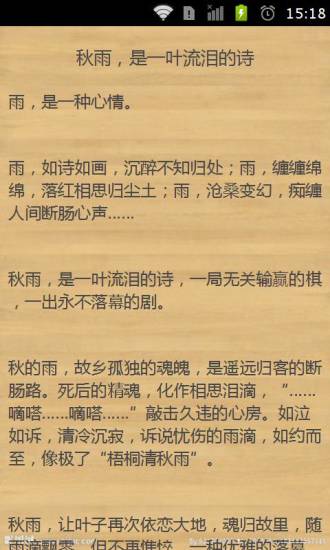 15:18
秋雨，是一叶流泪的诗
雨，是一种心情。
雨，如诗如画，沉醉不知归处；雨，缠缠绵
绵，落红相思归尘土；雨，沧桑变幻，痴缠
人间断肠心声……
秋雨，是一叶流泪的诗，一局无关输赢的棋
，一出永不落幕的剧。
秋的雨，故乡孤独的魂魄，是遥远归客的断
肠路。死后的精魂，化作相思泪滴，“……
嘀嗒……嘀嗒……”敲击久违的心房。如泣
如诉，清冷沉寂，诉说忧伤的雨滴，如约而
至，像极了“梧桐清秋雨”。
秋雨，让叶子再次依恋大地，魂归故里，随
雨滴飘零，但不再憔悴，一种优雅的落幕